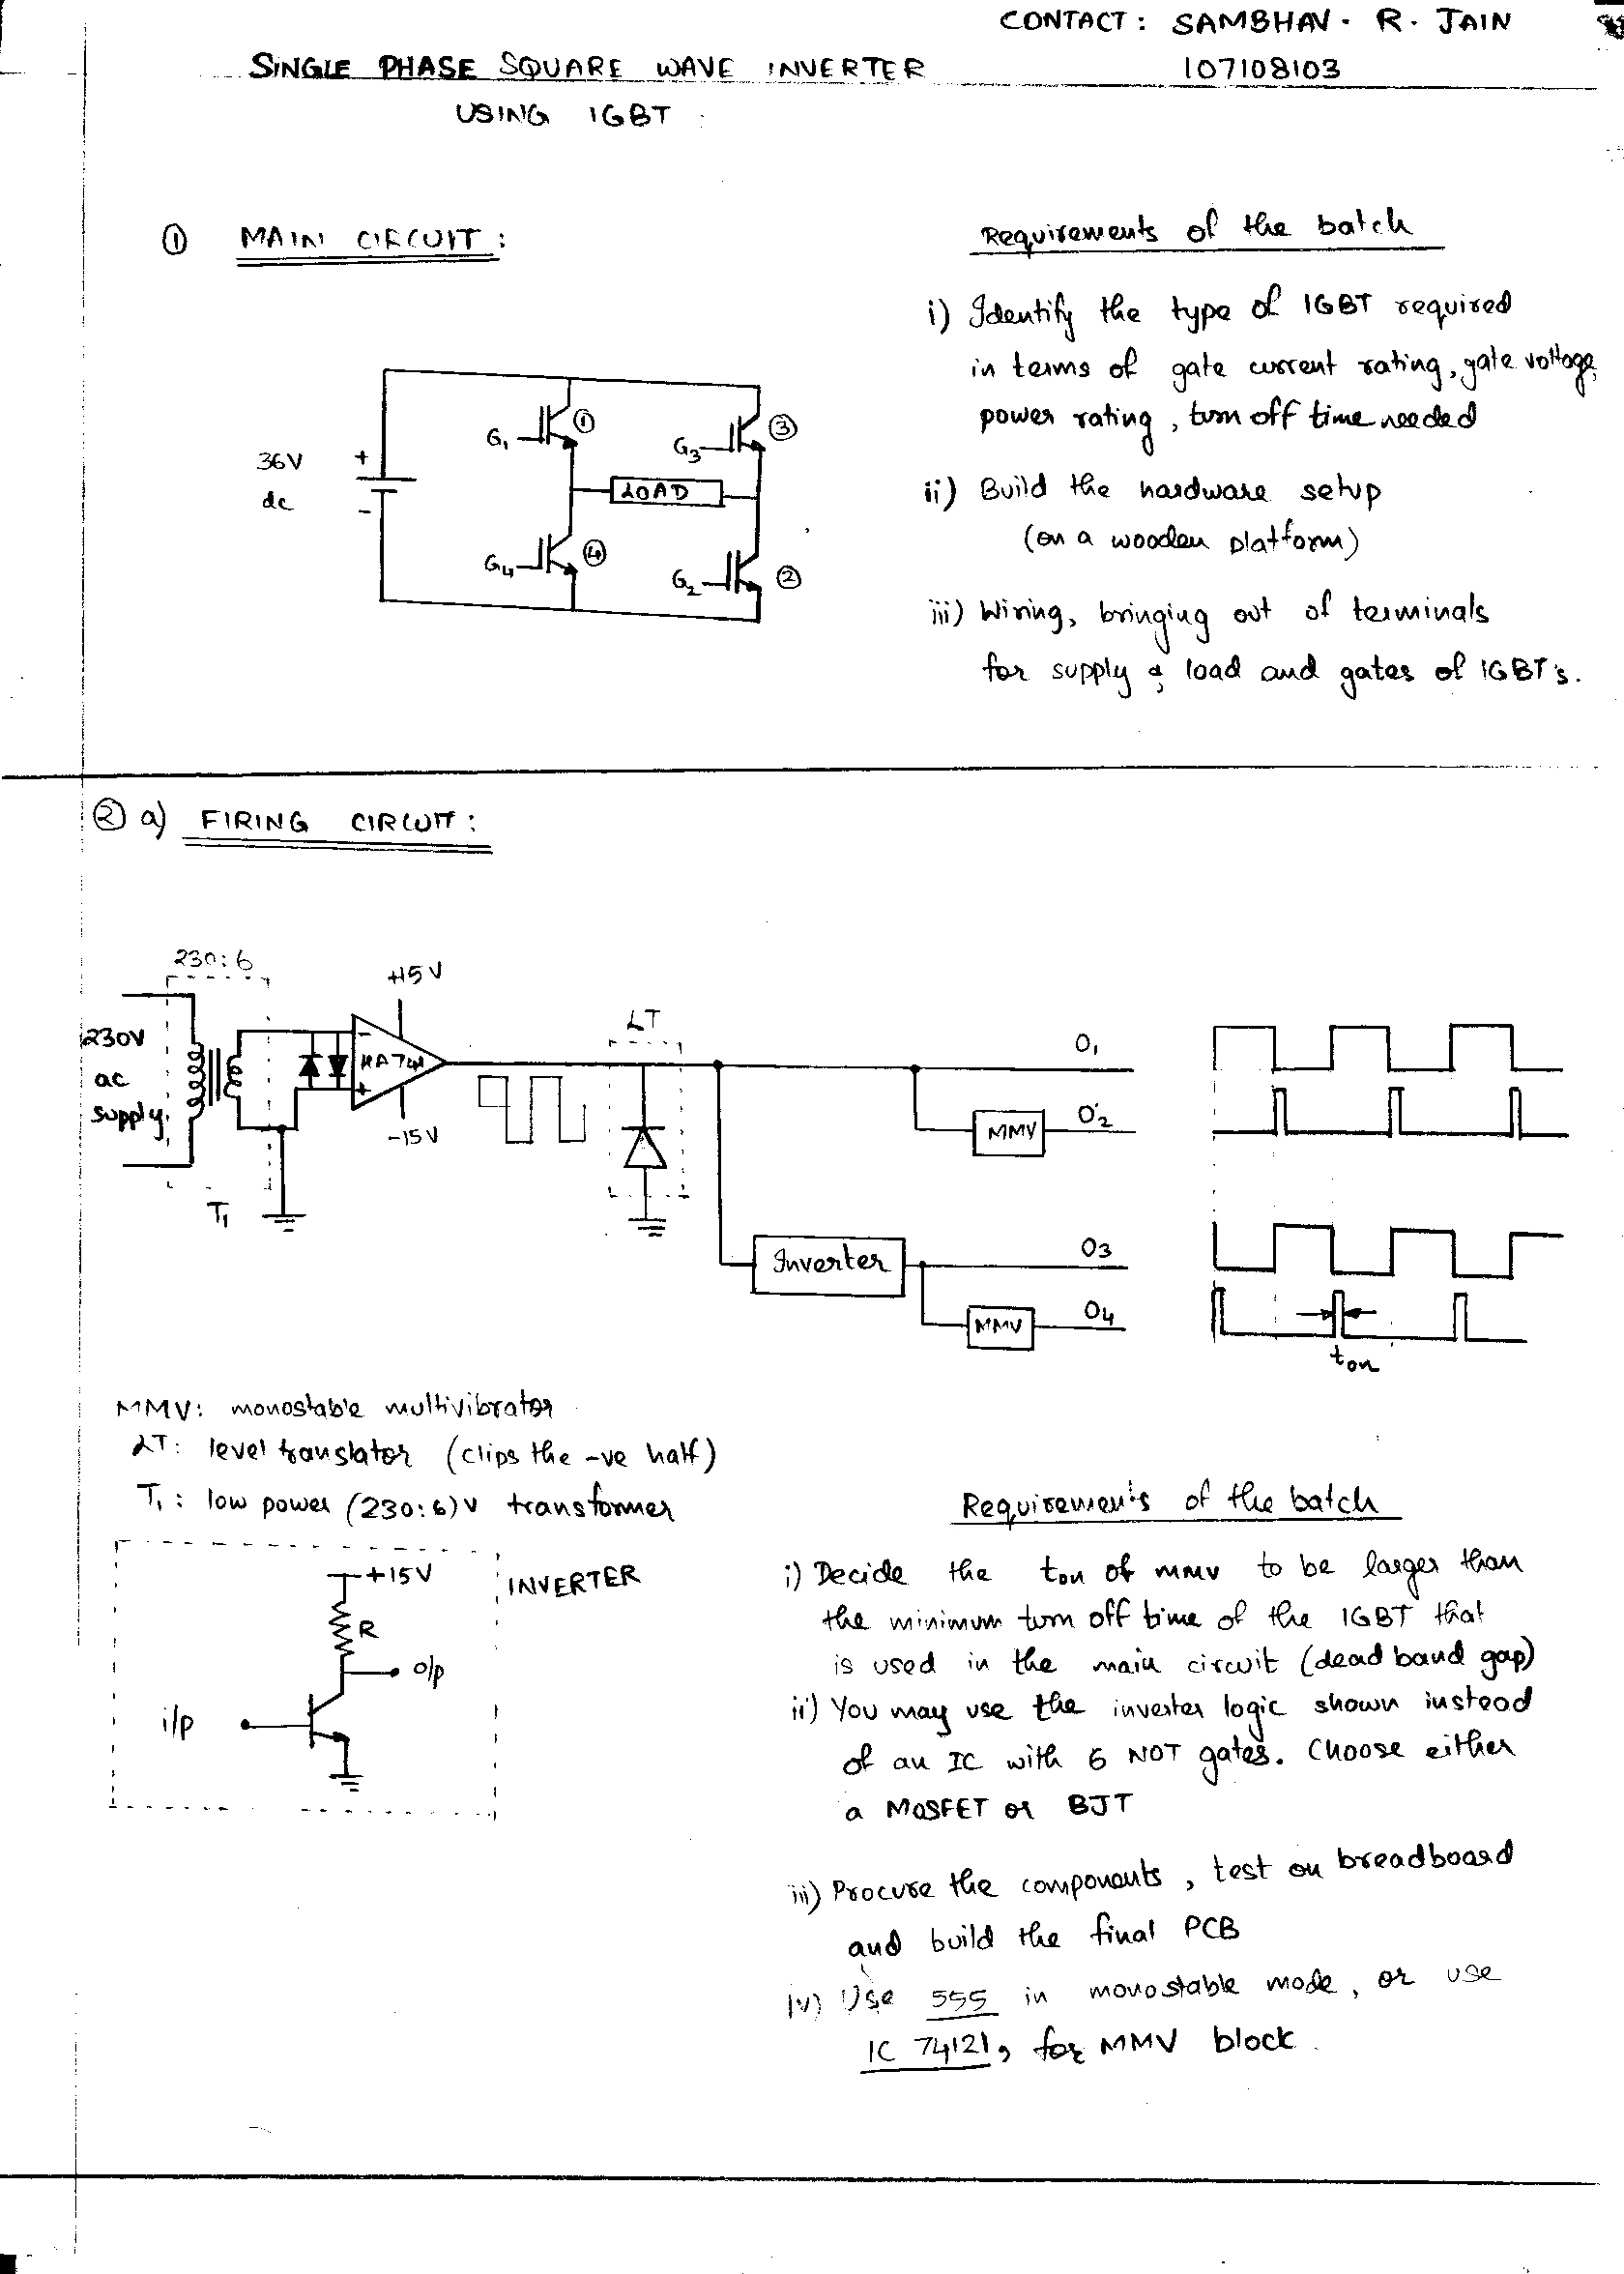 CONTACT: SAMBHAV. R. JAIN
107108103
SINGLE PHASE SQUARE WAVE INVERTER
USING IGBT
① MAIN CIRCUIT:
36V
dc
+
-
G1
①
G3
③
LOAD
G4
④
G2
②
Requirements of the batch
i) Identify the type of IGBT required
in terms of gate current rating, gate voltage,
power rating, turn off time needed
ii) Build the hardware setup
(on a wooden platform)
iii) Wiring, bringing out of terminals
for supply & load and gates of IGBT's.
② a) FIRING CIRCUIT:
230:6
230V
ac
supply
T1
+15V
-
μA741
+
-15V
LT
O1
MMV
O2
Inverter
O3
MMV
O4
ton
MMV: monostable multivibrator
LT: level translator (clips the -ve half)
T1: low power (230:6)V transformer
+15V
R
o/p
i/p
INVERTER
Requirements of the batch
i) Decide the ton of MMV to be larger than
the minimum turn off time of the IGBT that
is used in the main circuit (dead band gap)
ii) You may use the inverter logic shown instead
of an IC with 6 NOT gates. Choose either
a MOSFET or BJT
iii) Procure the components, test on breadboard
and build the final PCB
iv) Use 555 in monostable mode, or use
IC 74121, for MMV block.